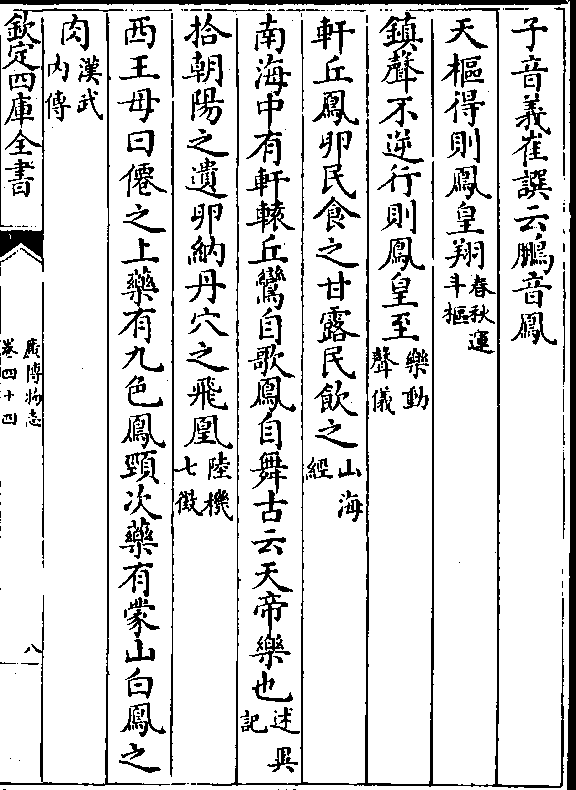 子音義崔譔云鵬音鳳
天樞得則鳳皇翔春秋運斗樞
鎮聲不逆行則鳳皇至樂動聲儀
軒丘鳳卵民食之甘露民飲之山海經
南海中有軒轅丘鸞自歌鳳自舞古云天帝樂也述異記
拾朝陽之遺卵納丹穴之飛凰陸機七徴
西王母曰僊之上藥有九色鳳頸次藥有蒙山白鳳之
肉漢武内傳
欽定四庫全書
廣博物志
卷四十四
八